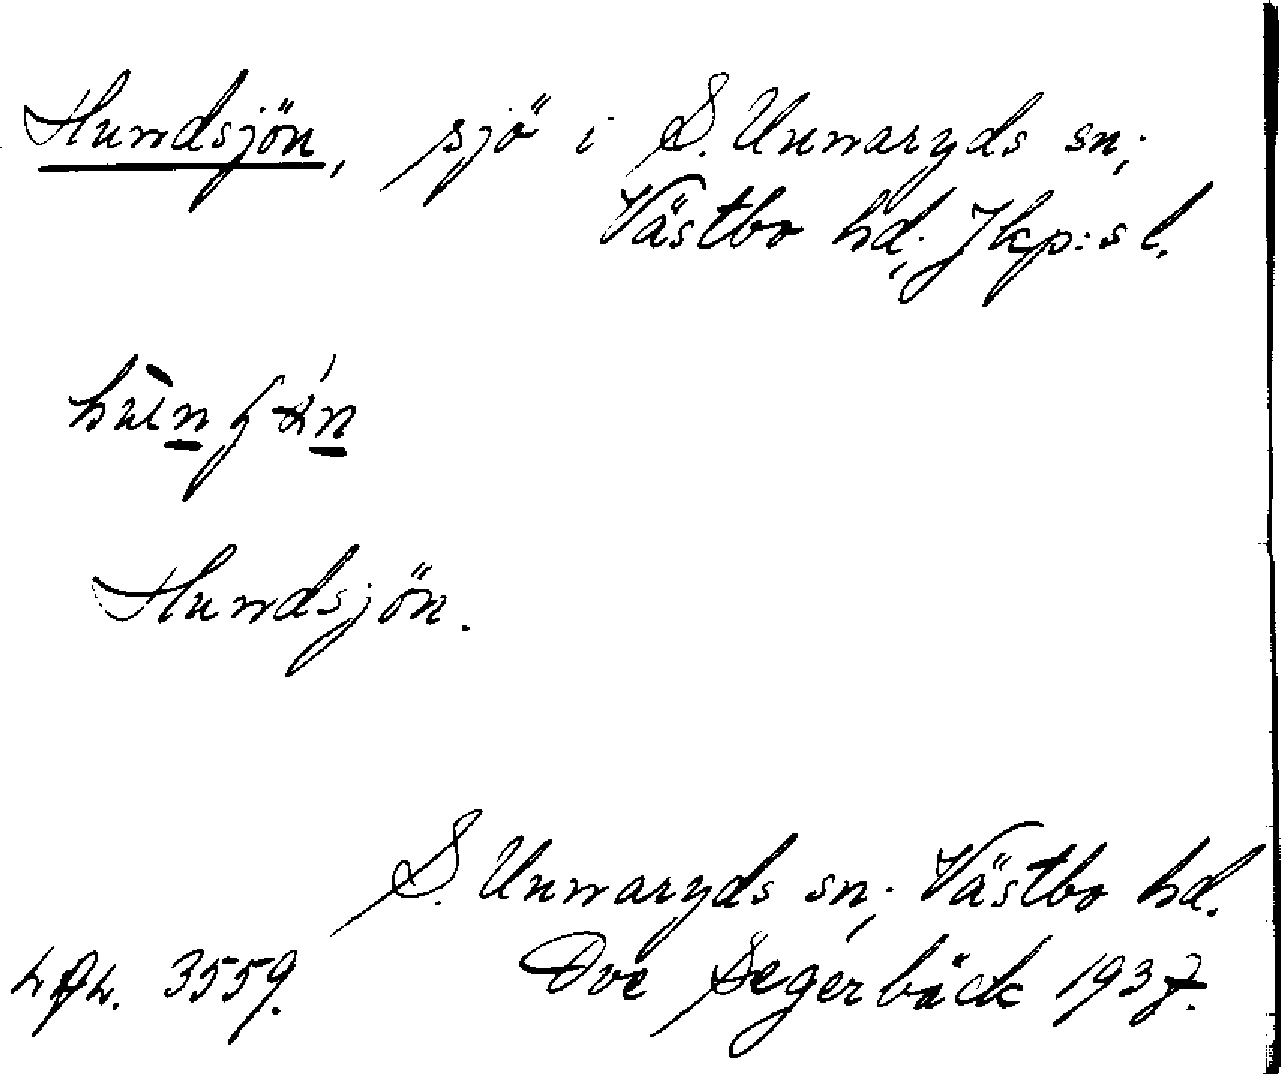 Hundsjön, sjö i S. Unnaryds sn;
Västbo hd; Jkp:s l.
Hundsjön.
S. Unnaryds sn; Västbo hd.
3559. Ove Segerbäck 1937.